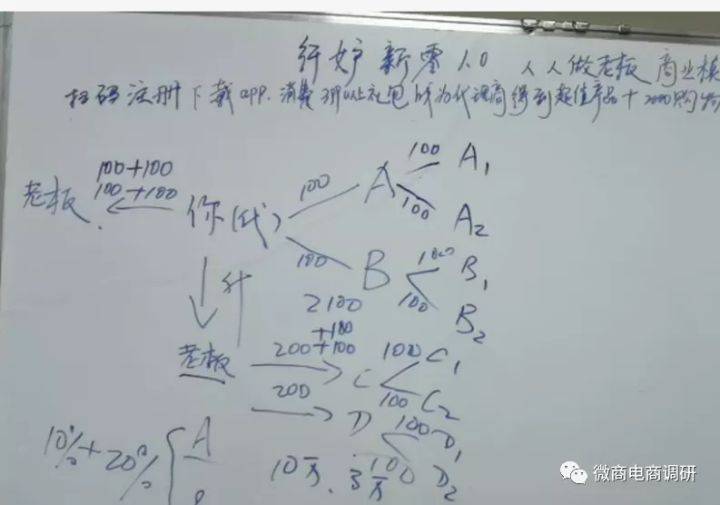 纤妒新零1.0 人人做老板 商业模
扫码注册下载app.消费399以上礼包成为代理商得到超值产品+2000购物
100+100
100+100
老板
你(代)
100
A
100 A1
100 A2
100
B
100 B1
100 B2
2100
升
+100
老板
200+100
C
100 C1
100 C2
200
D
100 D1
100 D2
10%+20%
A
10万、3万
微商电商调研